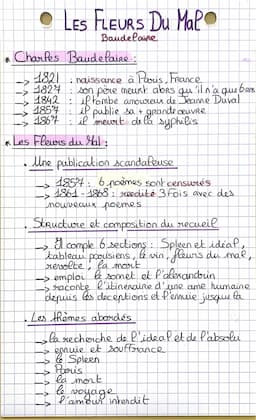 LES FLEURS DU MAL
Baudelaire
Charles Baudelaire :
→ 1821 : naissance à Paris, France
→ 1827 : son père meurt alors qu'il n'a que 6 ans
→ 1842 : il tombe amoureux de Jeanne Duval
→ 1857 : il publie sa + grande œuvre
→ 1867 : il meurt de la syphilis
Les Fleurs du Mal :
. Une publication scandaleuse
→ 1857 : 6 poèmes sont censurés
→ 1861 - 1868 : réédité 3 fois avec des
nouveaux poèmes
. Structure et composition du recueil
→ Il compte 6 sections : Spleen et idéal,
tableau parisiens, le vin, fleurs du mal,
révolte, la mort
→ emploi le sonnet et l'alexandrin
→ raconte l'itinéraire d'une âme humaine
depuis les déceptions et l'ennuie jusqu'à la
. Les thèmes abordés
→ la recherche de l'idéal et de l'absolu
→ ennuie et souffrance
→ le Spleen
→ Paris
→ la mort
→ le voyage
→ l'amour interdit